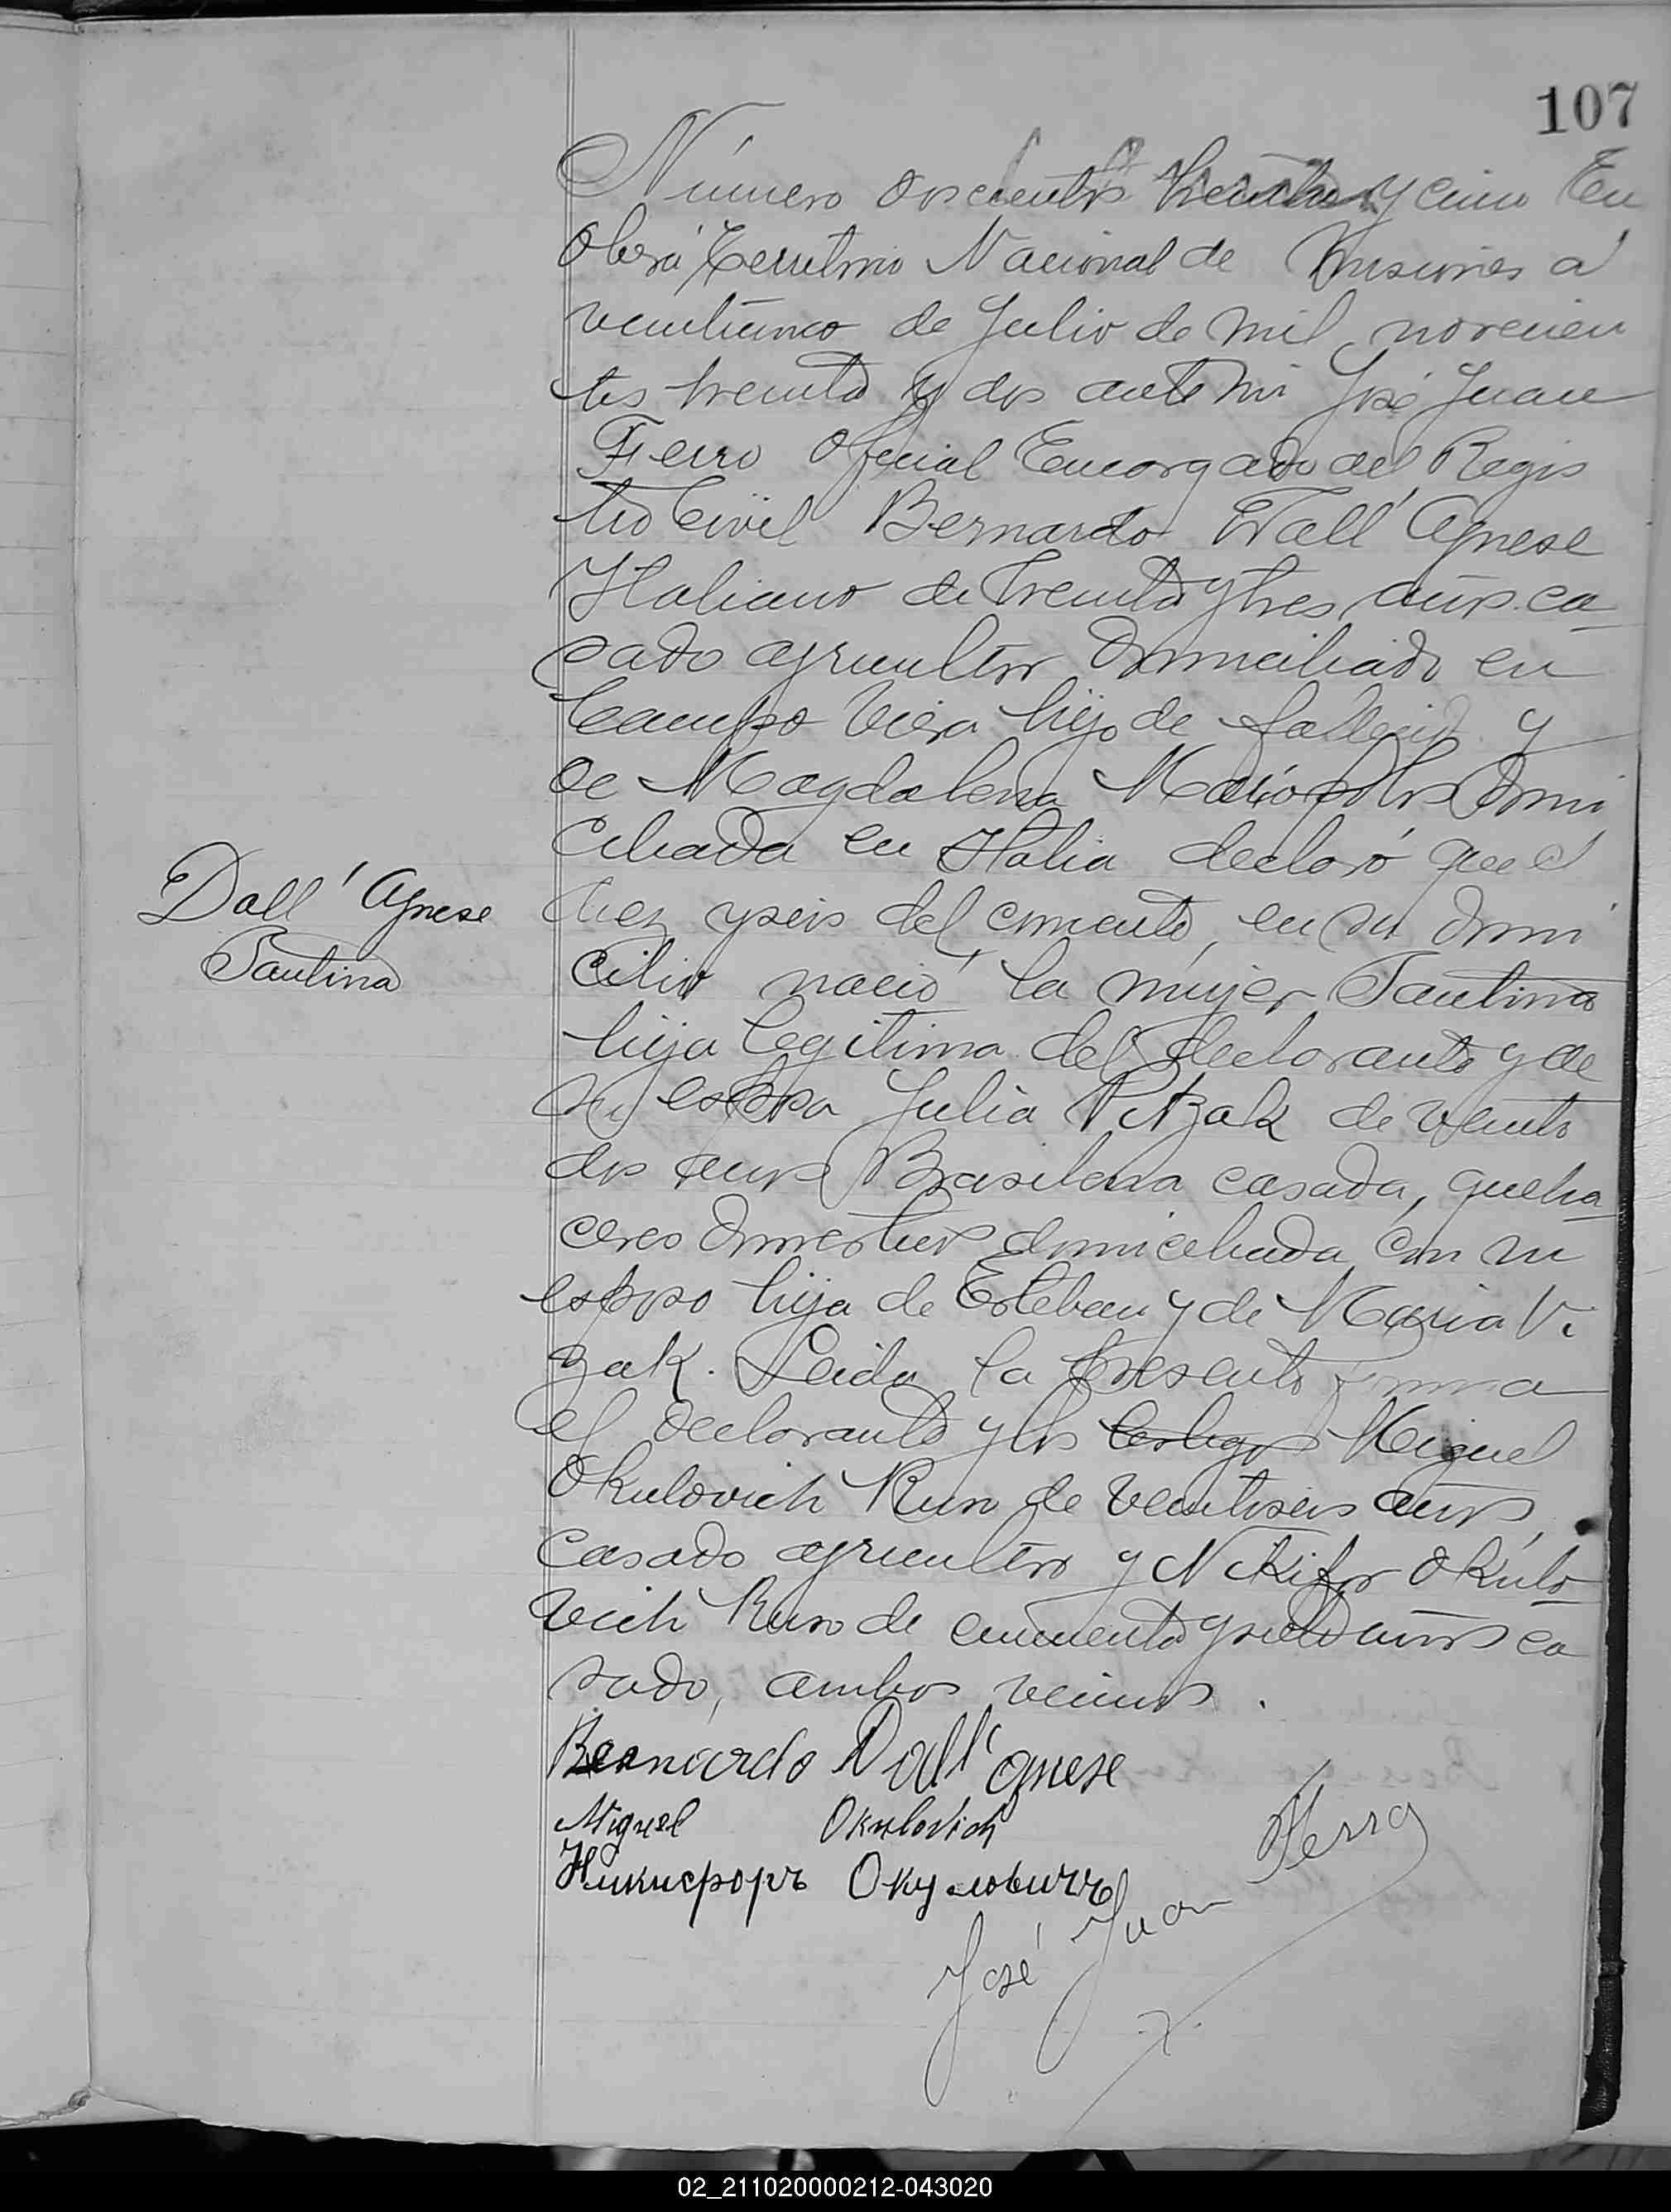 107
Número doscientos treinta y cinco En
Oberá Territorio Nacional de Misiones a
veinticinco de Julio de mil novecien
tos treinta y dos ante mi José Juan
Fierro Oficial Encargado del Regis
tro Civil Bernardo Dall' Agnese
Italiano de treinta y tres años ca-
sado agricultor domiciliado en
Campo Viera hijo de fallecido y
de Magdalena domi
ciliada en Italia declaró que el
diez y seis del corriente, en su domi
Dall' Agnese
Santina
cilio nació la mujer Santina
hija legitima del declarante y de
su esposa Julia Vizak de veinti
dos años Brasilera casada, queha-
ceres domesticos domiciliada con su
esposo hija de Esteban y de Maria Vi
zak. Leida la presente firma
el declarante y los testigos Miguel
Okulovich Ruso de veintiseis años,
casado agricultor y Nikifor Okulo
vich Ruso de cincuenta y siete años ca
sado, ambos vecinos.
Bernardo Dall' agnese
Miguel Okulovich
Никифоръ Окуловичъ
José Juan Fierro
02_211020000212-043020